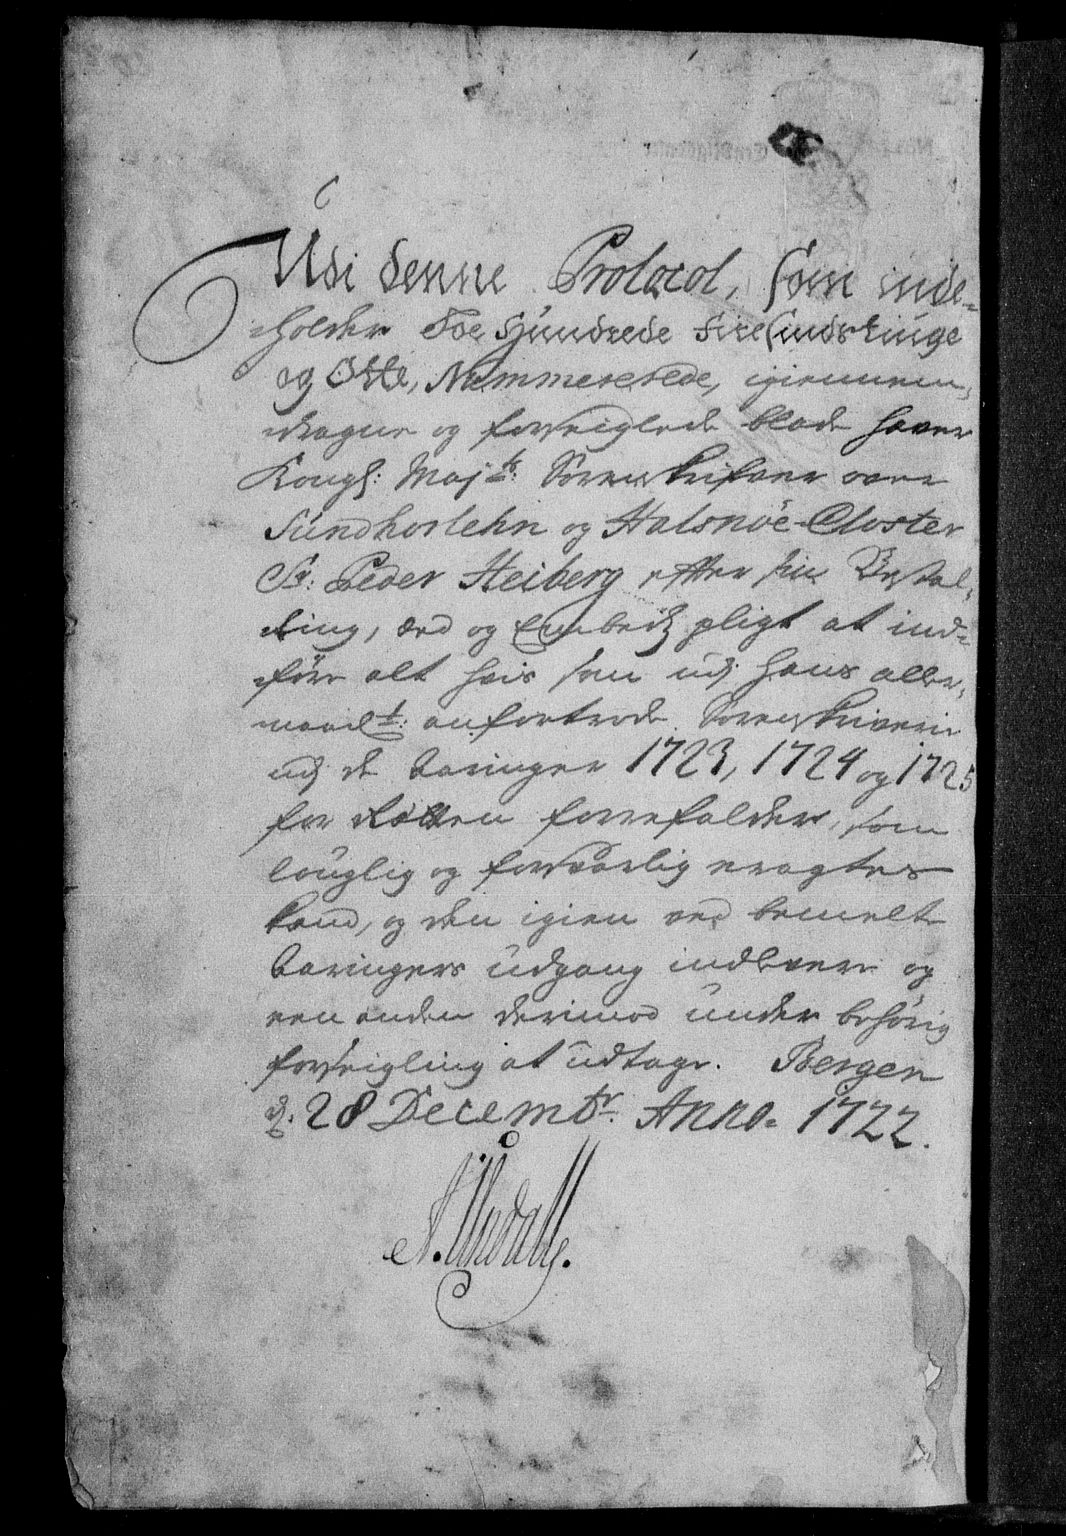 Udi denne Protocol, som inde-
holder Toe Hundrede Firesindstiuge
og Otte, Nummererede, igiennem-
dragne og forseiglede blade haver
Kongl: Maj:ts Sorenskrifver over
Sundhorlehn og Halsnöe-Closter
Sr: Peder Heiberg effter sin Bestal-
ling, eed og Embeds pligt at ind-
före alt hvis som udj hans aller-
naadt: anfortrode Sorenskriverie
udj de 3aringer 1723, 1724 og 1725
for Rätten forrefalder, som
louglig og forsvarlig eragtes
kand, og den igien ved bemelte
3aringers udgang indlevere og
een anden derimod under behörig
forseigling at udtage. Bergen
d. 28 Decembr. Anno. 1722.
A. Undall.